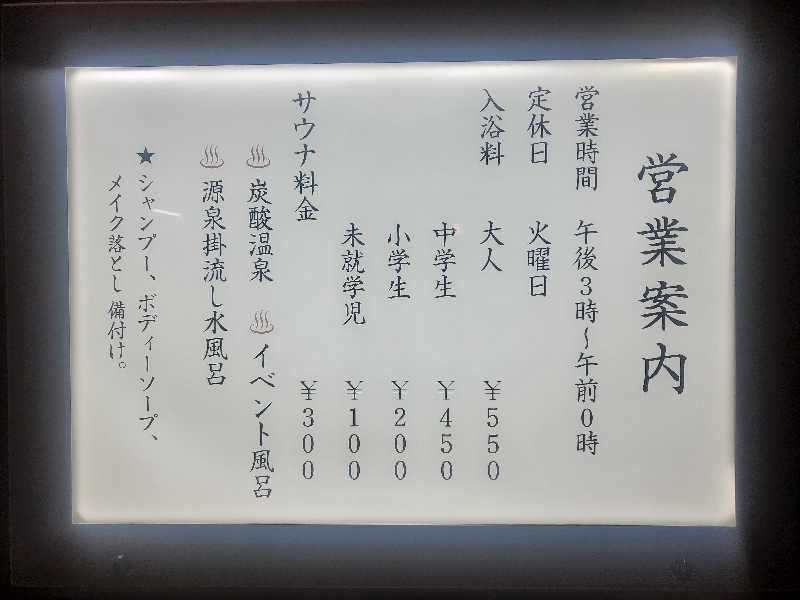 営業案内
営業時間 午後3時~午前0時
定休日 火曜日
入浴料 大人 ¥550
中学生 ¥450
小学生 ¥200
未就学児 ¥100
サウナ料金 ¥300
♨ 炭酸温泉 ♨ イベント風呂
♨ 源泉掛流し水風呂
★シャンプー、ボディーソープ、
メイク落とし備付け。